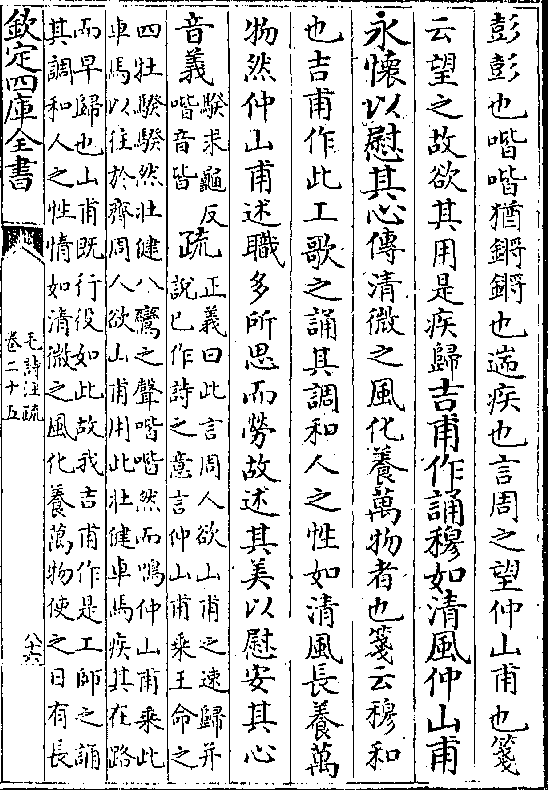 彭彭也喈喈猶鏘鏘也遄疾也言周之望仲山甫也箋
云望之故欲其用是疾歸吉甫作誦穆如清風仲山甫
永懷以慰其心傳清微之風化養萬物者也箋云穆和
也吉甫作此工歌之誦其調和人之性如清風長養萬
物然仲山甫述職多所思而勞故述其美以慰安其心
音義騤求龜反
喈音皆
疏正義曰此言周人欲山甫之速歸并
說已作詩之意言仲山甫乘王命之
四牡騤騤然壮健八鸞之聲喈喈然而鳴仲山甫乘此
車馬以往於齊周人欲山甫用此壮健車馬疾其在路
而早歸也山甫既行役如此故我吉甫作是工師之誦
其調和人之性情如清微之風化養萬物使之日有長
欽定四庫全書
毛詩注疏
卷二十五
八十六